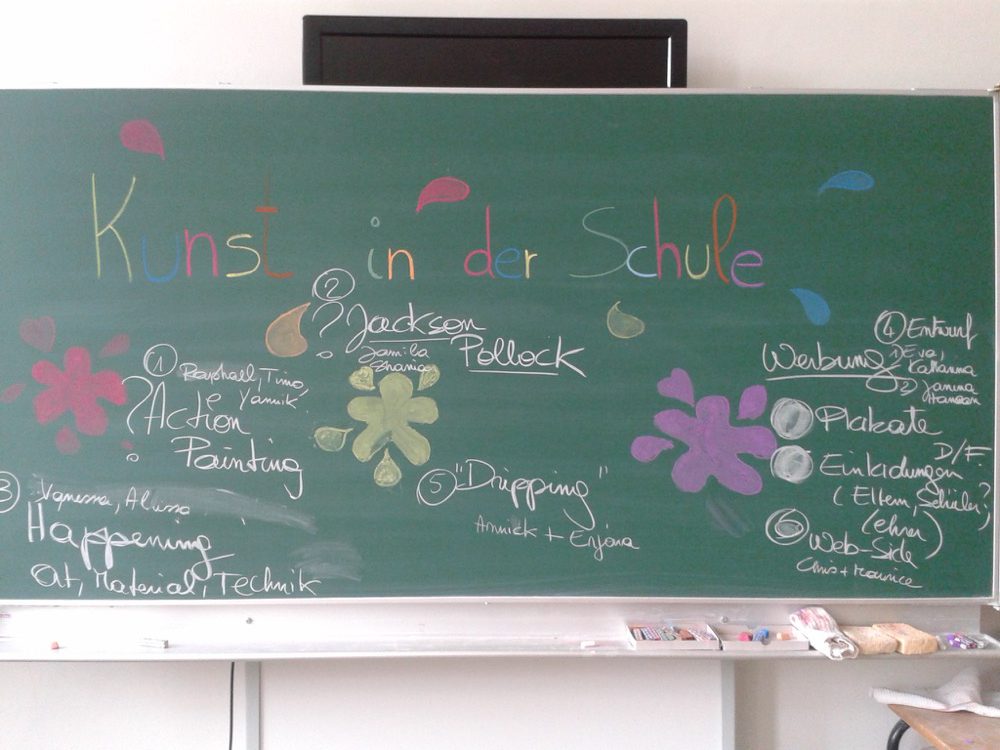 Kunst in der Schule
①
Raphaël, Timo,
Yannik
? Action
Painting
②
? Jackson
Pollock
Jamila
③
Vanessa, Alissa
Happening
Ort, Material, Technik
④ Entwurf
Werbung
1) Eva,
Katharina
2) Janina
Plakate
D/F
Einladungen
(Eltern, Schüler,?
Lehrer)
⑤ "Dripping"
Annick + Enjona
⑥ Web-Side
Chris + Maurice